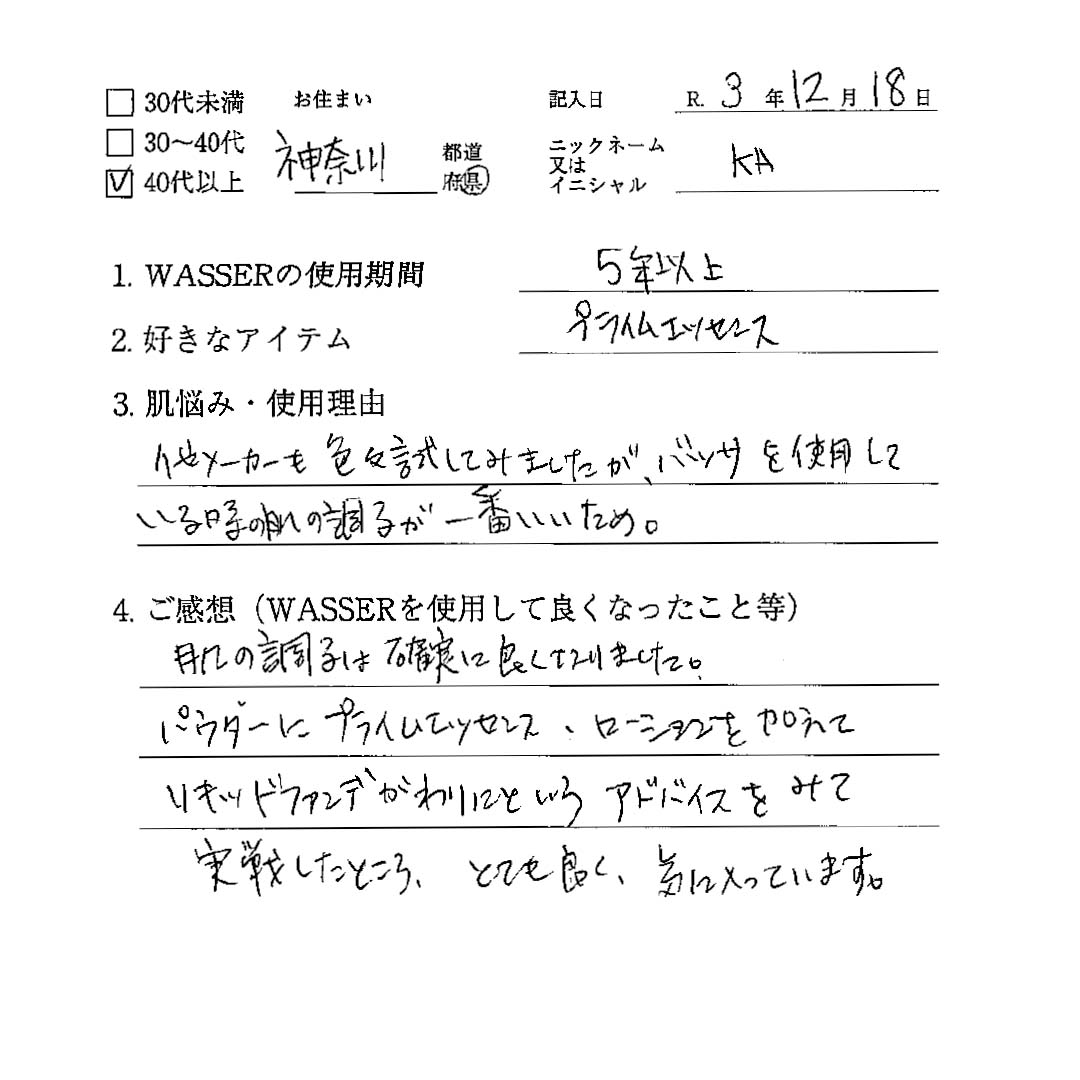 30代未満 お住まい 記入日 R. 3 年 12 月 18 日
30〜40代 神奈川 都道 ニックネーム 又は イニシャル KA
☑ 40代以上 府県
1. WASSERの使用期間 5年以上
2. 好きなアイテム プライムエッセンス
3. 肌悩み・使用理由
他メーカーも色々試してみましたが、バッサを使用して
いる時の肌の調子が一番いいため。
4. ご感想（WASSERを使用して良くなったこと等）
肌の調子は確実に良くなりました。
パウダーにプライムエッセンス、ローションを加えて
リキッドファンデがわりにという アドバイスをみて
実戦したところ、とても良く、気に入っています。